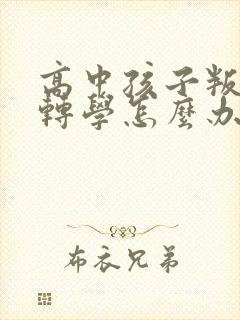 高中孩子叛
轉學怎麼办
布衣兄弟